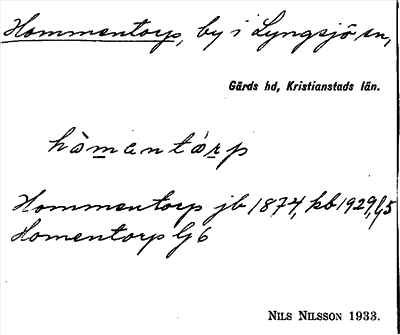 Hommentorp, by i Lyngsjö sn,
Gärds hd, Kristianstads län.
hòmantárp
Hommentorp jb 1874, kb 1929, Lj5
Homentorp Lj 6
NILS NILSSON 1933.